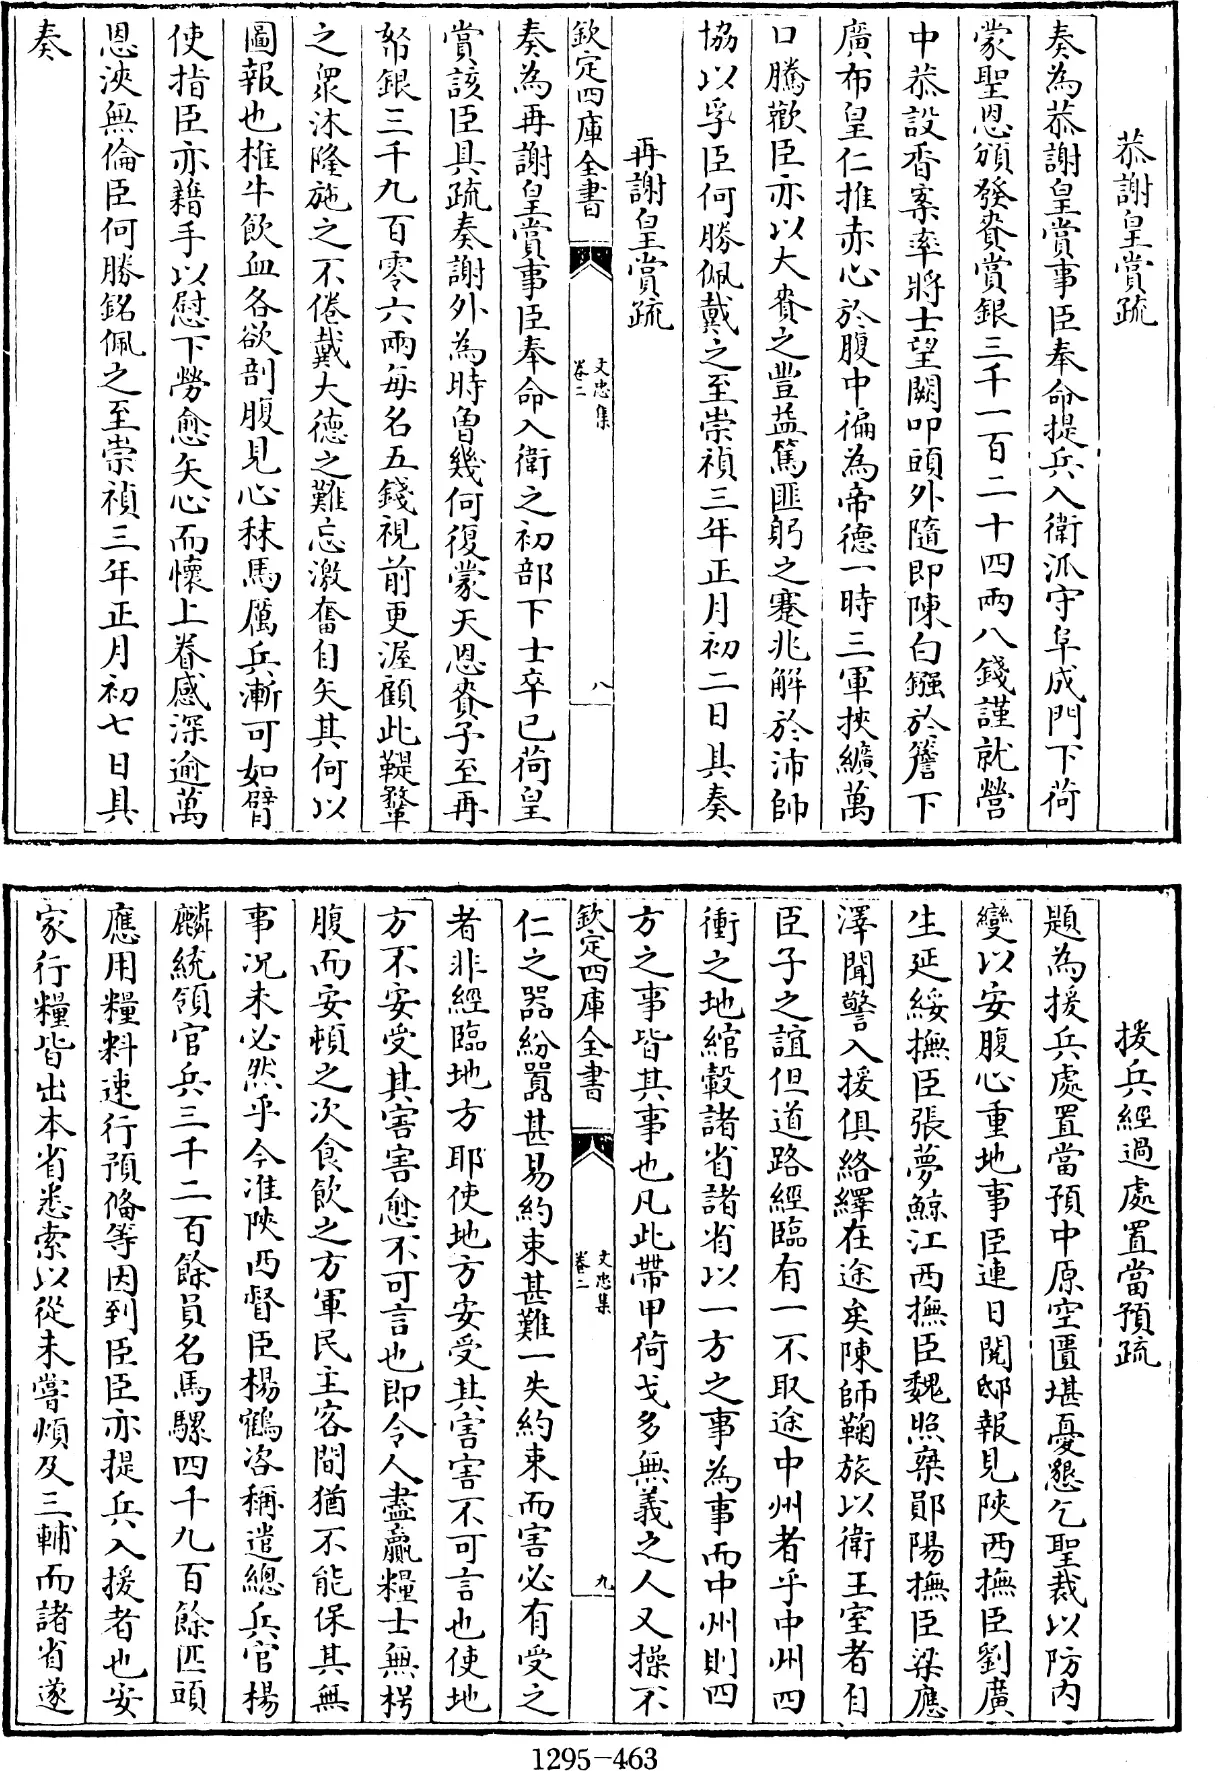 恭謝皇賞疏
奏為恭謝皇賞事臣奉命提兵入衛派守阜成門下荷
蒙聖恩頒發賚賞銀三千一百二十四兩八錢謹就營
中恭設香案率將士望闕叩頭外隨即陳白鏹於簷下
廣布皇仁推赤心於腹中徧為帝德一時三軍挾纊萬
口騰歡臣亦以大賚之豐益篤匪躬之蹇兆解於沛師
協以孚臣何勝佩戴之至崇禎三年正月初二日具奏
再謝皇賞疏
欽定四庫全書
文忠集
卷二
八
奏為再謝皇賞事臣奉命入衛之初部下士卒已荷皇
賞該臣具疏奏謝外為時曾幾何復蒙天恩賚予至再
帑銀三千九百零六兩每名五錢視前更渥顧此鞮鍪
之衆沐隆施之不倦戴大德之難忘激奮自矢其何以
圖報也椎牛飲血各欲剖腹見心秣馬厲兵漸可如臂
使指臣亦藉手以慰下勞愈矢心而懷上眷感深逾萬
恩浹無倫臣何勝銘佩之至崇禎三年正月初七日具
奏
援兵經過處置當預疏
題為援兵處置當預中原空匱堪憂懇乞聖裁以防內
變以安腹心重地事臣連日閱邸報見陝西撫臣劉廣
生延綏撫臣張夢鯨江西撫臣魏照椉鄖陽撫臣梁應
澤聞警入援俱絡繹在途矣陳師鞠旅以衛王室者自
臣子之誼但道路經臨有一不取途中州者乎中州四
衝之地綰轂諸省諸省以一方之事為事而中州則四
方之事皆其事也凡此帶甲荷戈多無義之人又操不
欽定四庫全書
文忠集
卷二
九
仁之器紛囂甚易約束甚難一失約束而害必有受之
者非經臨地方耶使地方安受其害害不可言也使地
方不安受其害害愈不可言也即令人盡贏糧士無枵
腹而安頓之次食飲之方軍民主客間猶不能保其無
事况未必然乎今准陝西督臣楊鶴咨稱遣總兵官楊
麟統領官兵三千二百餘員名馬騾四千九百餘匹頭
應用糧料速行預備等因到臣臣亦提兵入援者也安
家行糧皆出本省悉索以從未嘗煩及三輔而諸省遂
1295-463